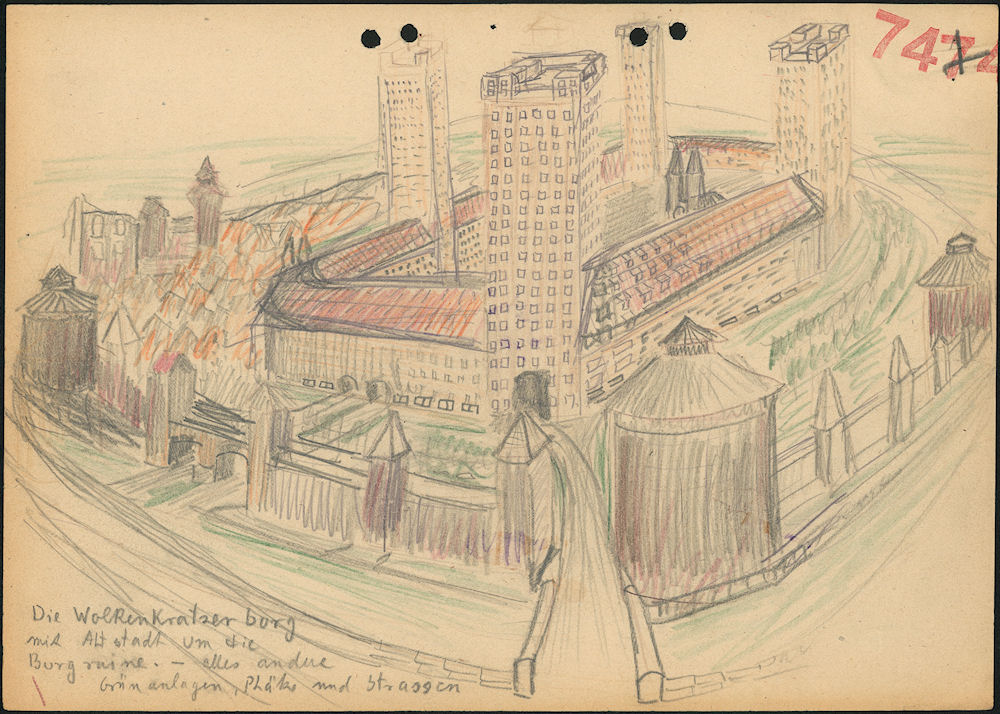 7474
Die Wolkenkratzer borg
mit Altstadt um die
Burg ruine. – alles andere
Grünanlagen, Plätze und Strassen